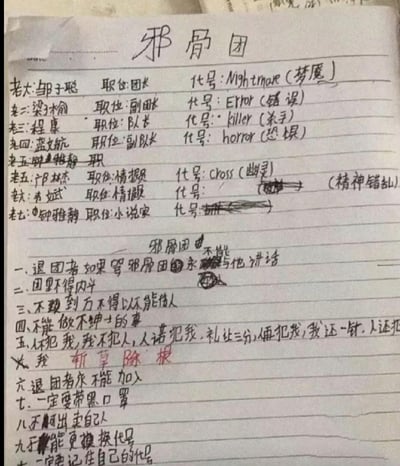 邪骨团
老大:邹子聪 职位:团长 代号:Nightmare(梦魇)
老二:梁子榆 职位:副团 代号:Error(错误)
老三:程 职位:队长 代号:killer(杀手)
老四:孟文航 职位:副队长 代号:horror(恐惧)
老五 职
老五:邝林杰 职位:情报 代号:cross(幽灵)
老六: 斌 职位:情报 代号: (精神错乱)
老七:钟雅静 职位:小说家 代号:
邪骨团
一、退团者如果骂邪骨团永不能与他讲话
二、团里不得内斗
三、不到万不得以不能借人
四、不能做不绅士的事
五、人不犯我,我不犯人,人若犯我,礼让三分,人再犯我,我还一针,人还犯
我 斩草除根
六、退团者永不能加入
七、一定要带黑口罩
八、不可出卖自己人
九、不能更换代号
十、一定要记住自己的代号